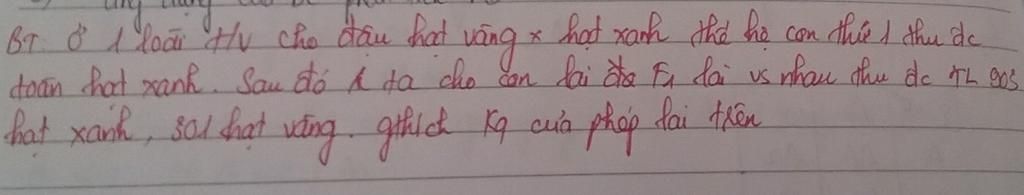 BT. Ở 1 loài TV cho đậu hạt vàng x hạt xanh thế hệ con thứ 1 thu dc
toàn hạt xanh. Sau đó ta cho con lai F1 lai vs nhau thu dc TL 905
hạt xanh, 301 hạt vàng. gthích Kq của phép lai trên